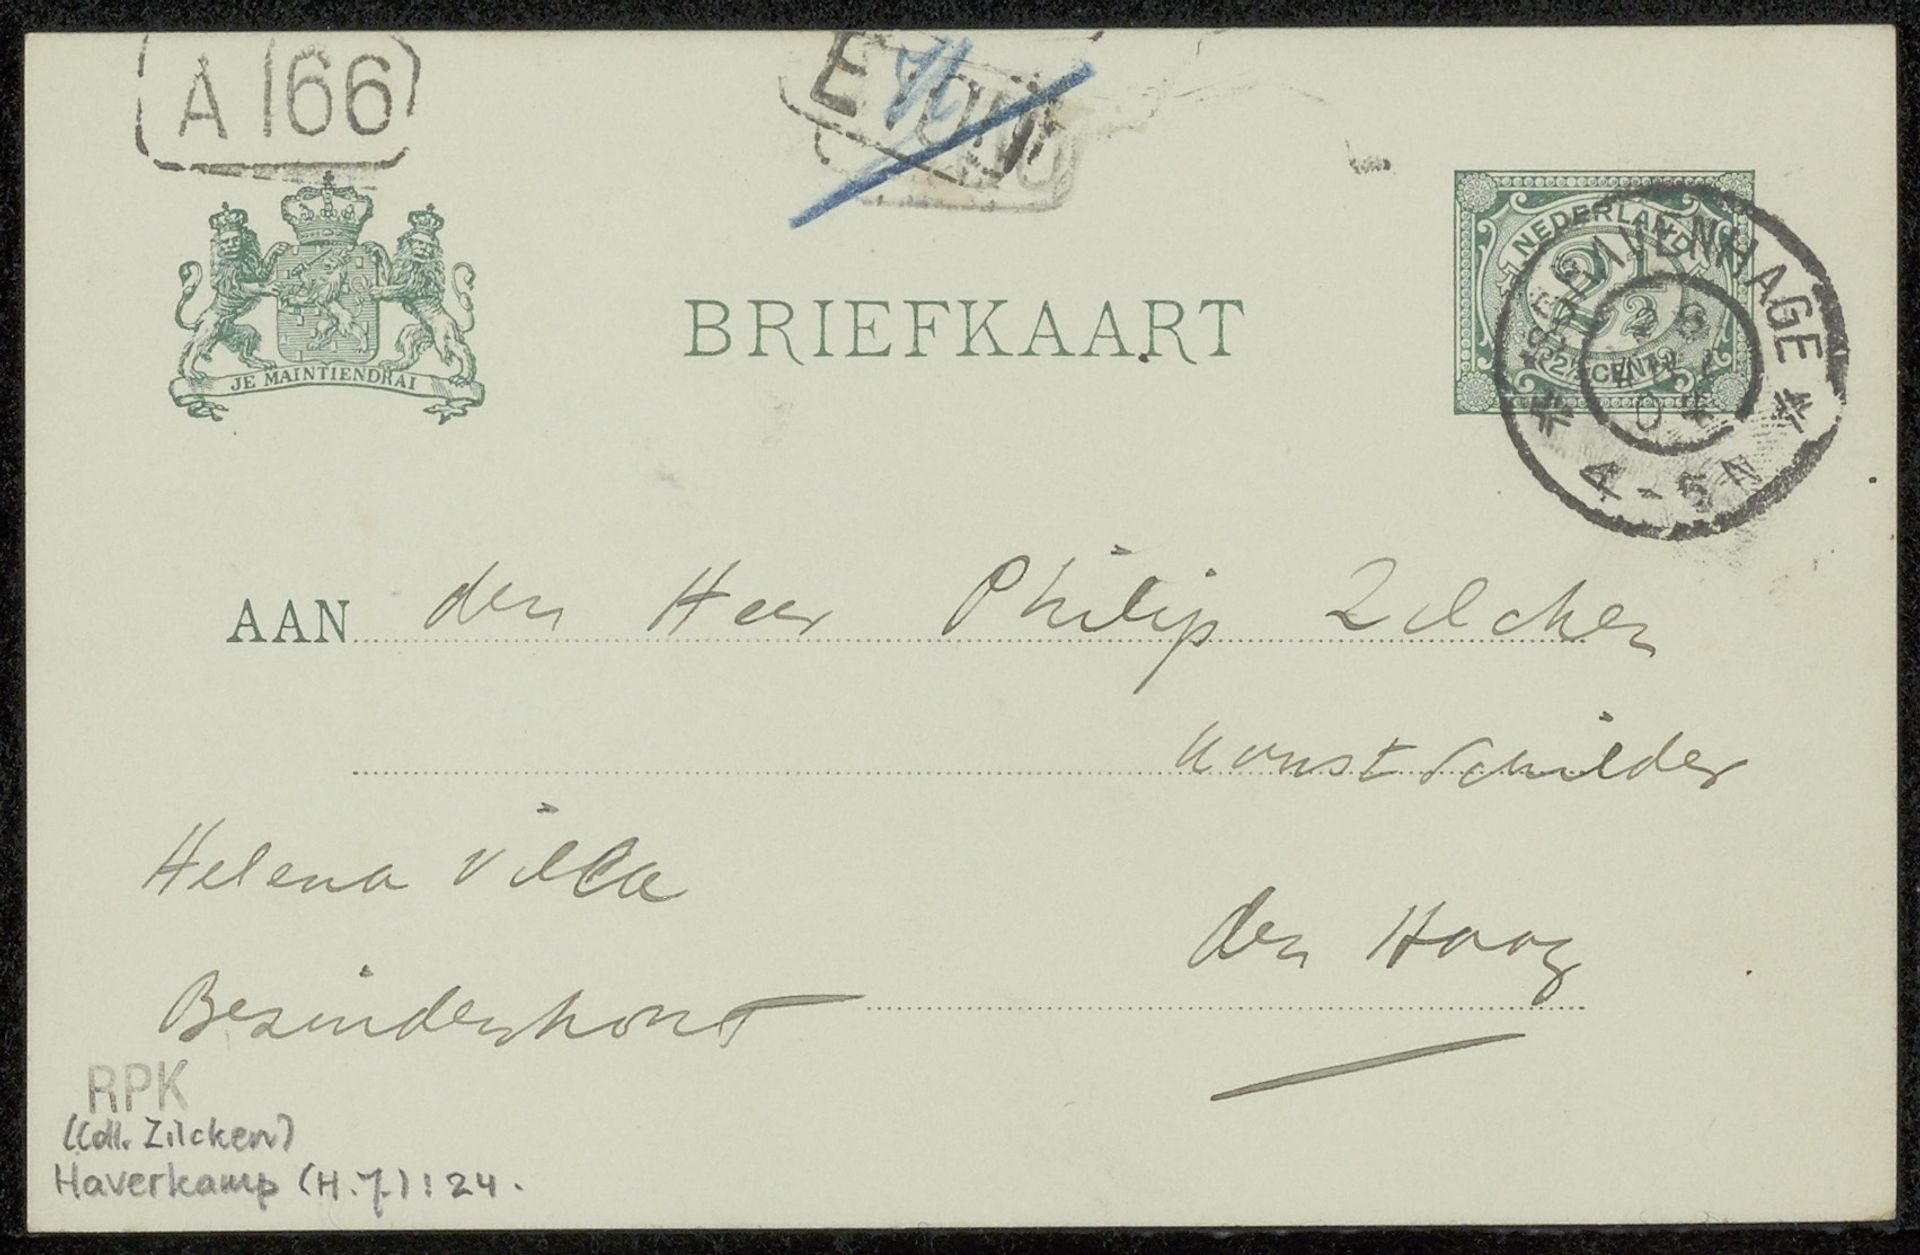 A 166
BRIEFKAART
JE MAINTIENDRAI
NEDERLAND
2½
2½ CENT
'S GRAVENHAGE
4-5N
AAN den Heer Philip Zilcken
Kunstschilder
Helena Villa
den Haag
Bezuidenhout
RPK
(Coll. Zilcken)
Haverkamp (H.J.): 24.